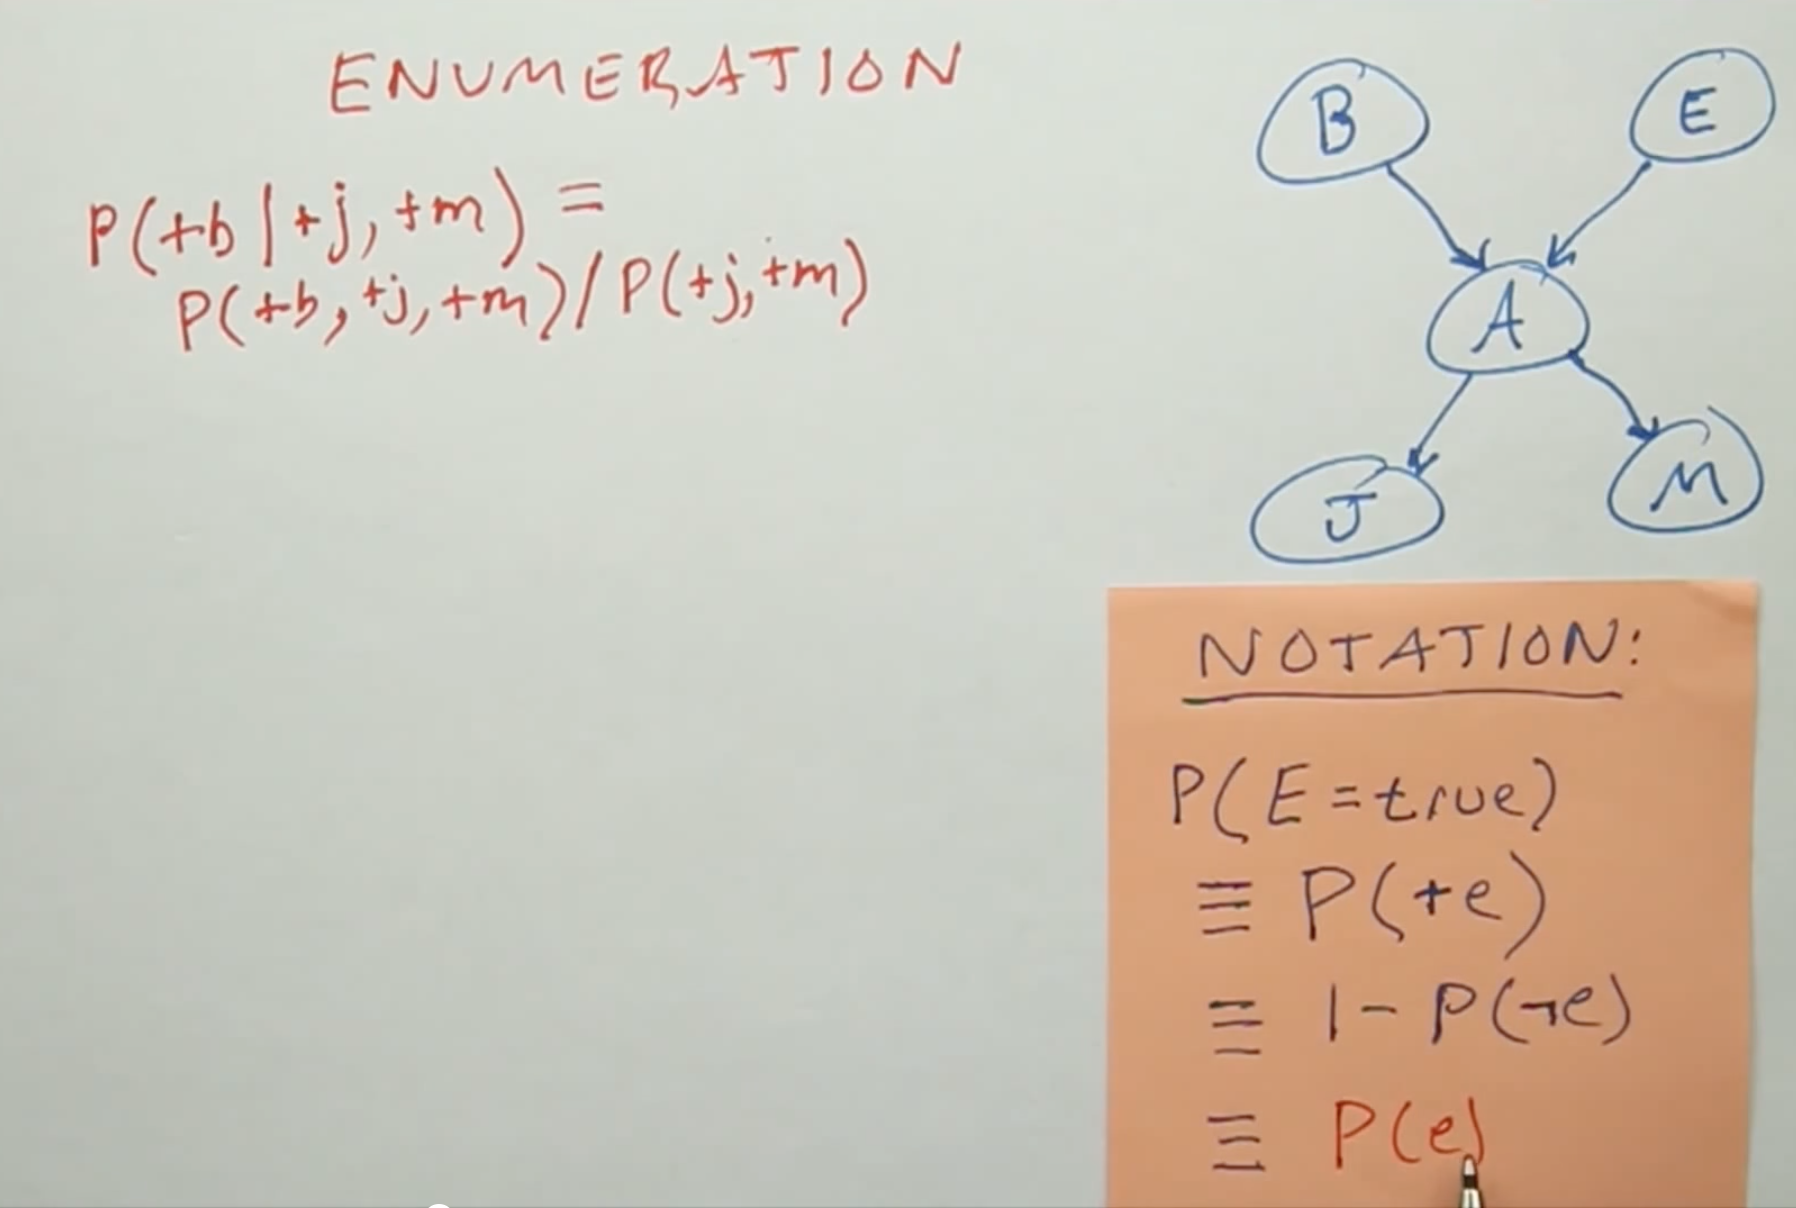 ENUMERATION
P(+b|+j,+m) =
P(+b,+j,+m)/P(+j,+m)
B
E
A
J
M
NOTATION:
P(E=true)
≡ P(+e)
≡ 1-P(¬e)
≡ P(e)